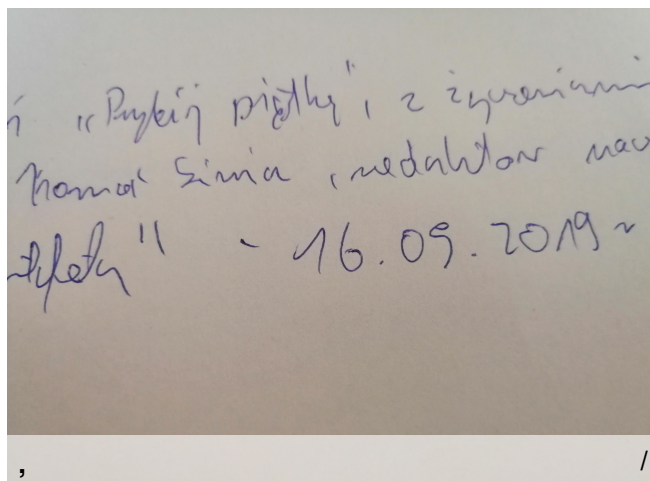 "Przybij piątkę", z życzeniami
Tomasz Simia, redaktor nacz
" - 16.09.2019 r
, /